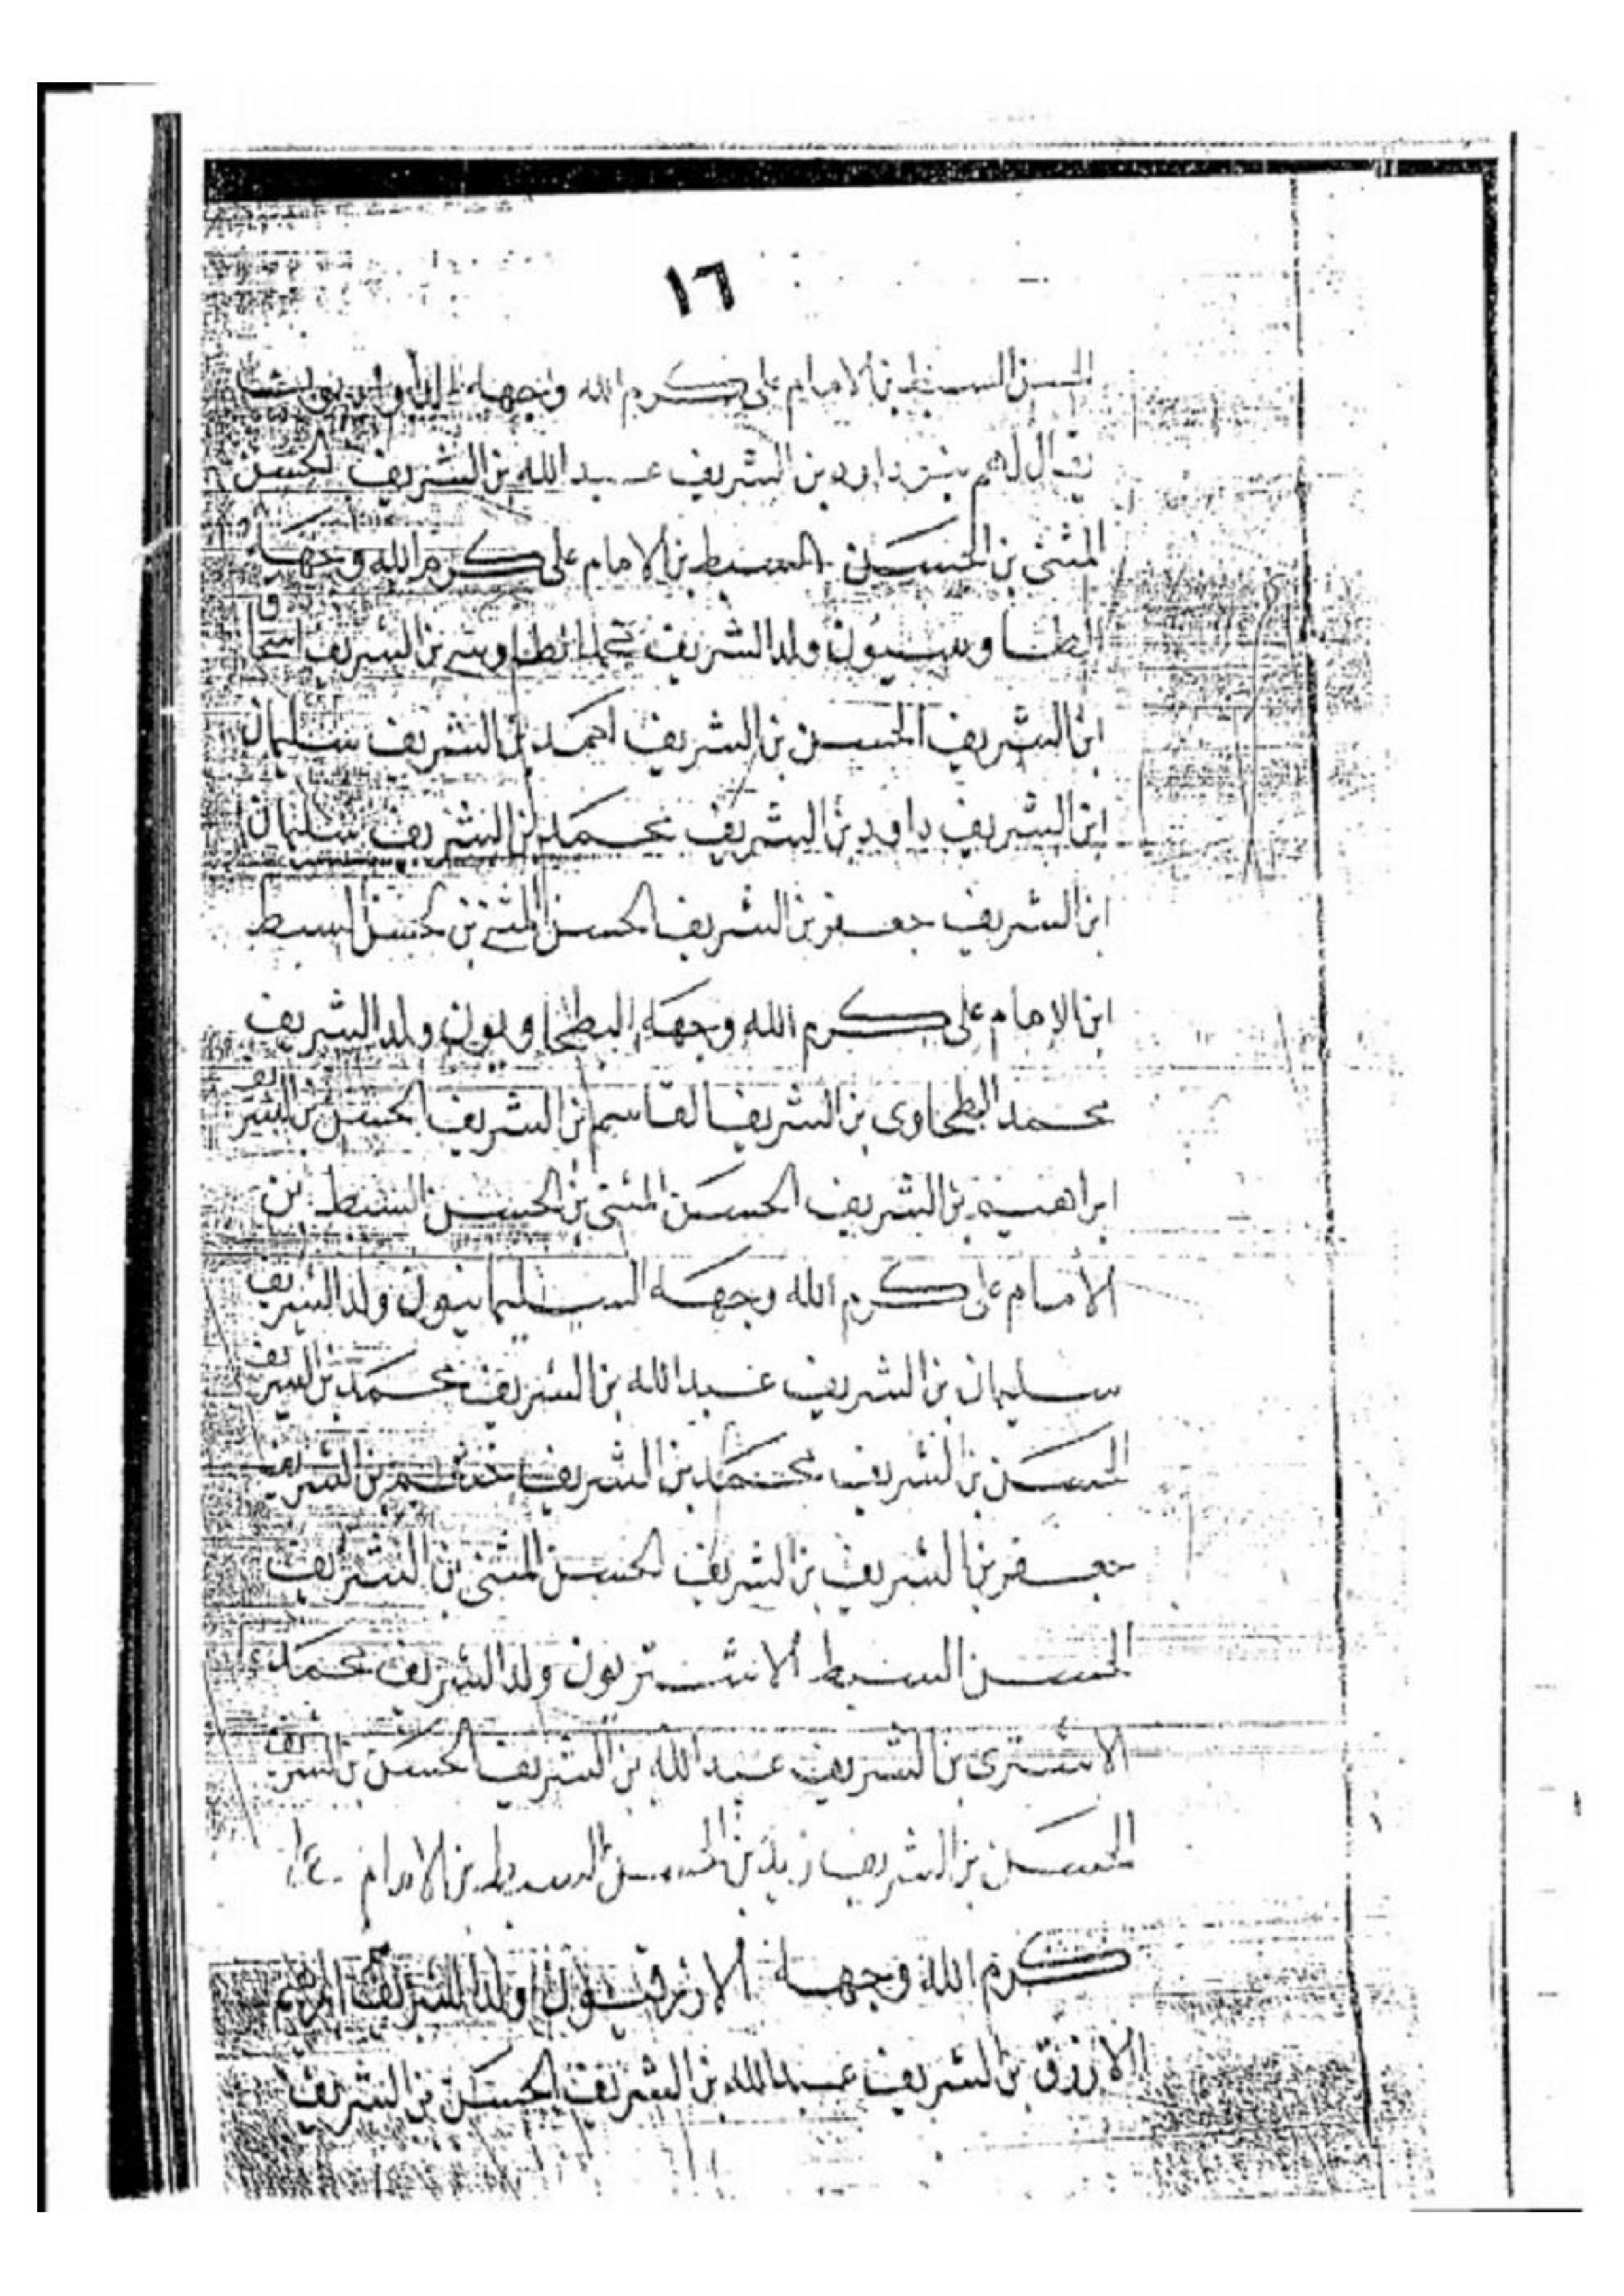 ١٦
الحسن السبط بن الامام على كرم الله وجهه
يقال لهم بنو داود بن الشريف عبد الله بن الشريف الحسن
المثنى بن الحسن السبط بن الامام على كرم الله وجهه
الطاوسيون ولد الشريف محمد الطاوسى بن الشريف اسحاق
ابن الشريف الحسن بن الشريف احمد بن الشريف سليمان
ابن الشريف داود بن الشريف محمد بن الشريف سليمان
ابن الشريف جعفر بن الشريف الحسن المثنى بن الحسن السبط
ابن الامام على كرم الله وجهه البطحاويون ولد الشريف
محمد البطحاوى بن الشريف القاسم بن الشريف الحسن بن الشريف
ابراهيم بن الشريف الحسن المثنى بن الحسن السبط بن
الامام على كرم الله وجهه السليمانيون ولد الشريف
سليمان بن الشريف عبد الله بن الشريف محمد بن الشريف
الحسن بن الشريف محمد بن الشريف بن الشريف
جعفر بن الشريف بن الشريف الحسن المثنى بن الشريف
الحسن السبط الاشتريون ولد الشريف محمد
الاشترى بن الشريف عبد الله بن الشريف الحسن بن الشريف
الحسن بن الشريف زيد بن الحسن السبط بن الامام على
كرم الله وجهه الازرقيون ولد الشريف ابراهيم
الازرق بن الشريف عبد الله بن الشريف الحسن بن الشريف